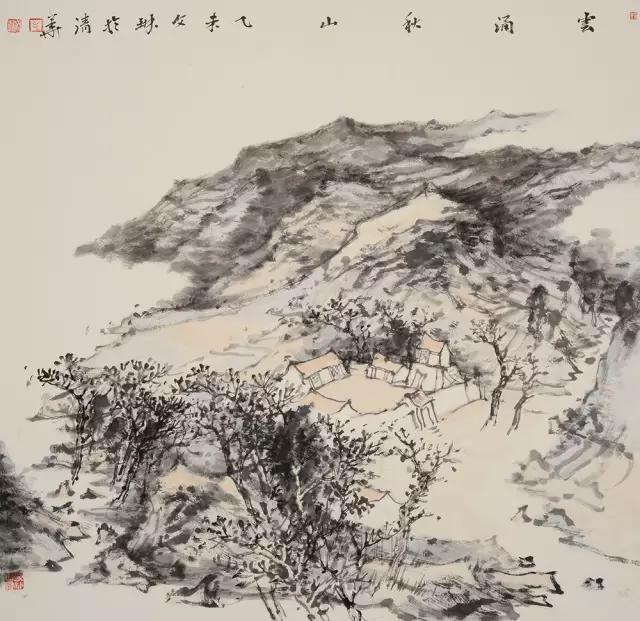 雲涌秋山 乙未文琳於清華